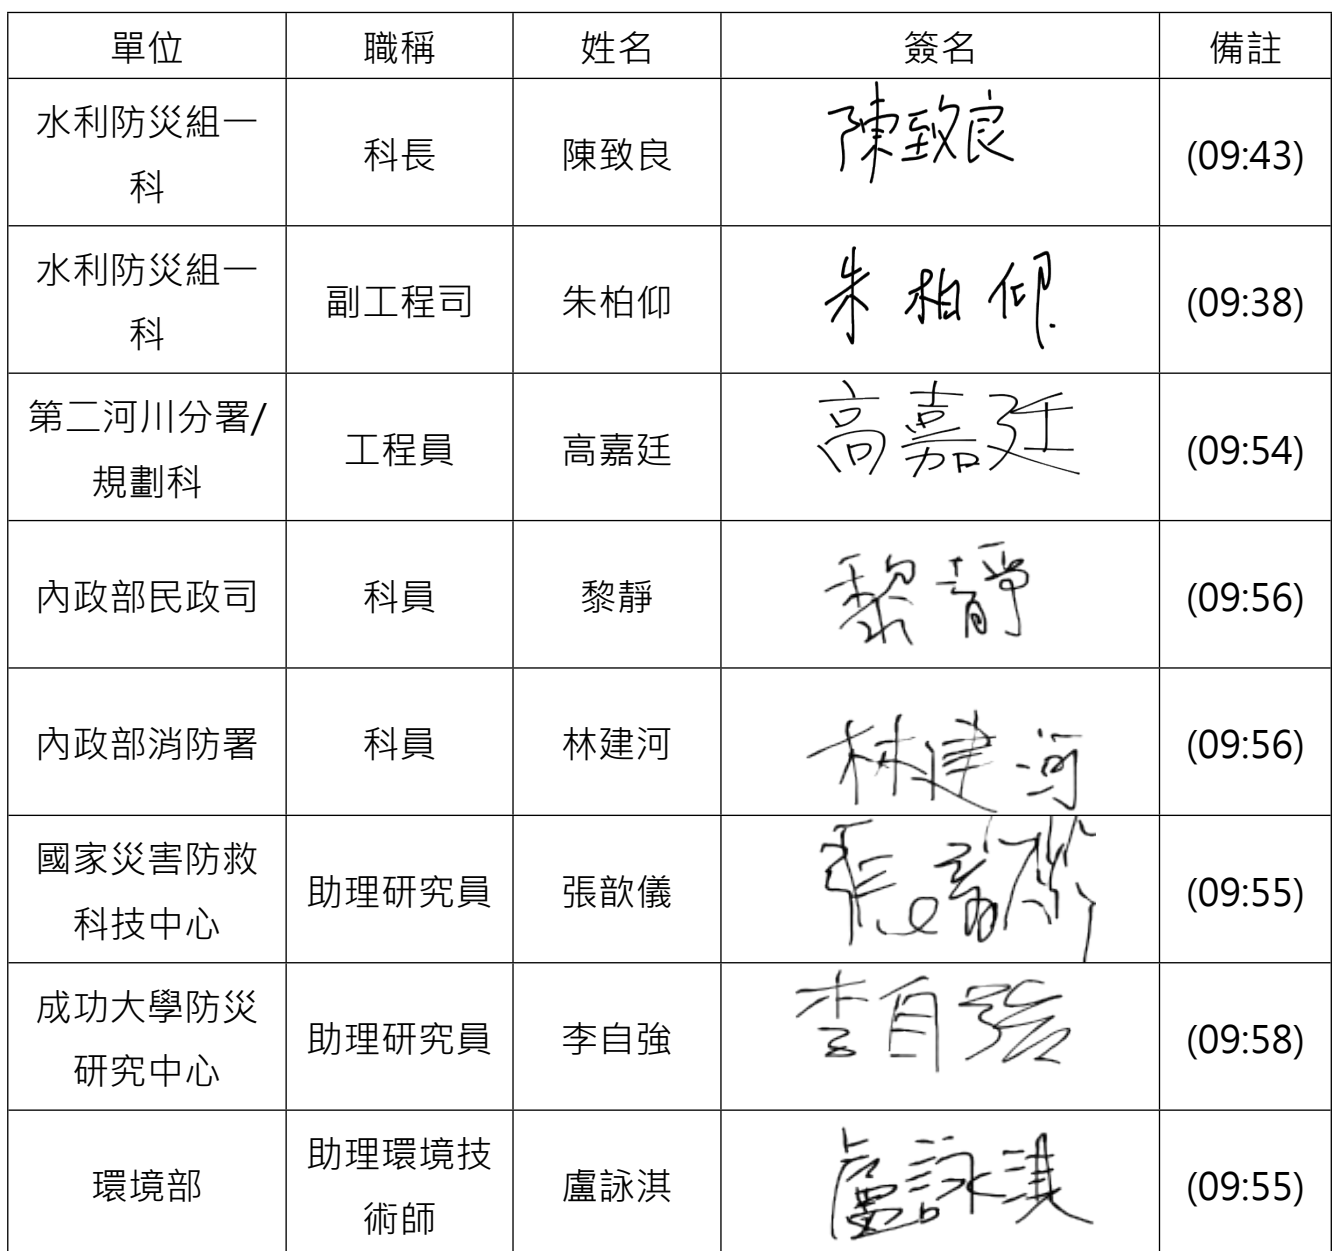 單位 職稱 姓名 簽名 備註
水利防災組一
科 科長 陳致良 陳致良 (09:43)
水利防災組一
科 副工程司 朱柏仰 朱柏仰 (09:38)
第二河川分署/
規劃科 工程員 高嘉廷 高嘉廷 (09:54)
內政部民政司 科員 黎靜 黎靜 (09:56)
內政部消防署 科員 林建河 林建河 (09:56)
國家災害防救
科技中心 助理研究員 張歆儀 (09:55)
成功大學防災
研究中心 助理研究員 李自強 李自強 (09:58)
環境部 助理環境技
術師 盧詠淇 盧詠淇 (09:55)